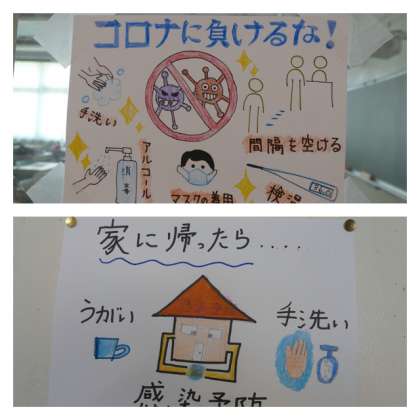 コロナに負けるな！
手洗い
間隔を空ける
アルコール
消毒
マスクの着用
検温
家に帰ったら....
うがい
手洗い
感染予防